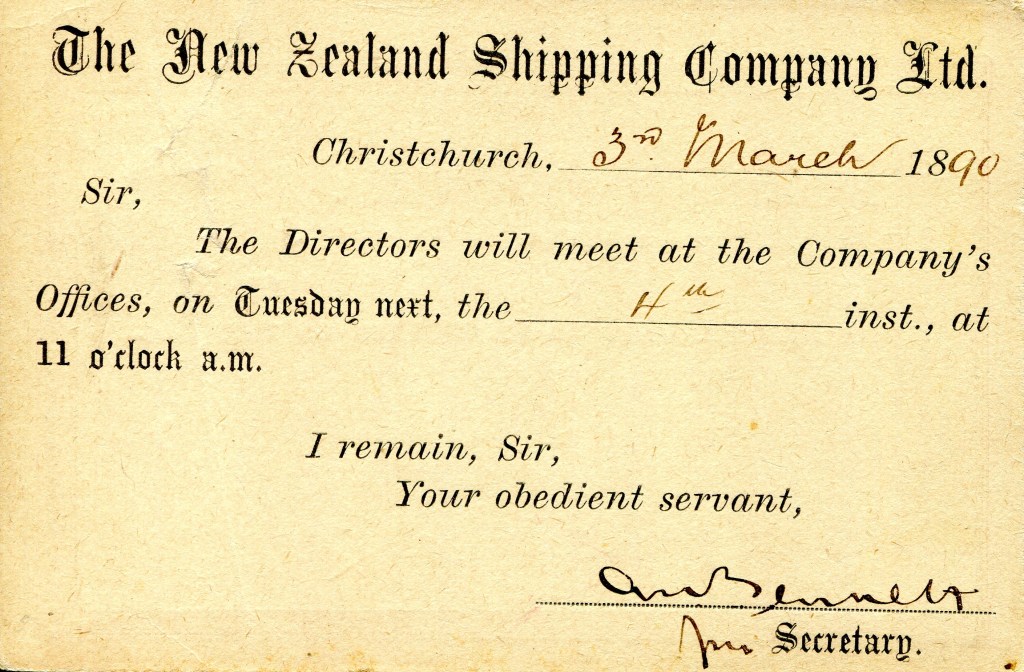 The New Zealand Shipping Company Ltd.
Christchurch, 3rd March 1890
Sir,
The Directors will meet at the Company's
Offices, on Tuesday next, the 4th inst., at
11 o'clock a.m.
I remain, Sir,
Your obedient servant,
Bennett
Secretary.